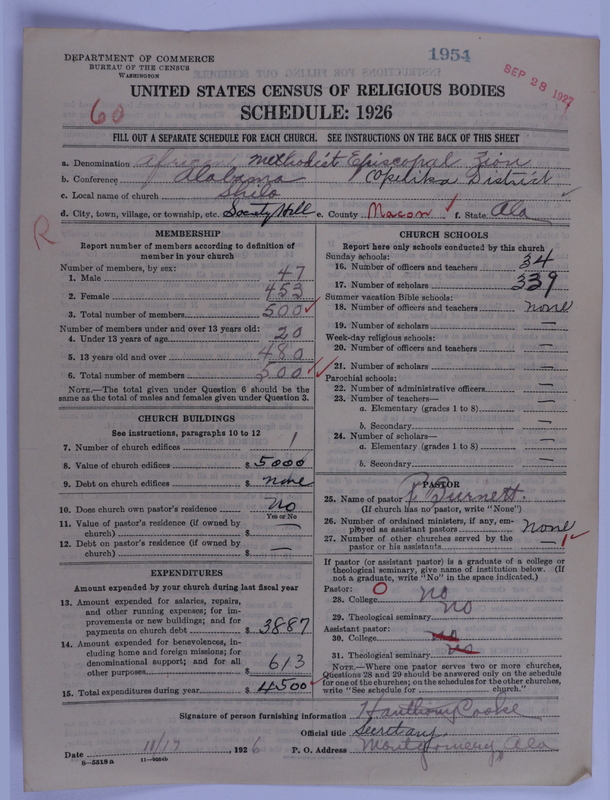 DEPARTMENT OF COMMERCE
BUREAU OF THE CENSUS
WASHINGTON
1954
SEP 28 1927
60
UNITED STATES CENSUS OF RELIGIOUS BODIES
SCHEDULE: 1926
FILL OUT A SEPARATE SCHEDULE FOR EACH CHURCH. SEE INSTRUCTIONS ON THE BACK OF THIS SHEET
a. Denomination African Methodist Episcopal Zion
b. Conference Alabama Opelika District
c. Local name of church Shilo
d. City, town, village, or township, etc. Society Hill e. County Macon f. State Ala
R
MEMBERSHIP
Report number of members according to definition of
member in your church
Number of members, by sex:
1. Male 47
2. Female 453
3. Total number of members 500
Number of members under and over 13 years old:
4. Under 13 years of age 20
5. 13 years old and over 480
6. Total number of members 500
NOTE.—The total given under Question 6 should be the
same as the total of males and females given under Question 3.
CHURCH BUILDINGS
See instructions, paragraphs 10 to 12
7. Number of church edifices 1
8. Value of church edifices $ 5000
9. Debt on church edifices $ none
10. Does church own pastor's residence No
Yes or No
11. Value of pastor's residence (if owned by
church) $ —
12. Debt on pastor's residence (if owned by
church) $ —
EXPENDITURES
Amount expended by your church during last fiscal year
13. Amount expended for salaries, repairs,
and other running expenses; for im-
provements or new buildings; and for
payments on church debt $ 3887
14. Amount expended for benevolences, in-
cluding home and foreign missions; for
denominational support; and for all
other purposes $ 613
15. Total expenditures during year $ 4500
CHURCH SCHOOLS
Report here only schools conducted by this church
Sunday schools:
16. Number of officers and teachers 34
17. Number of scholars 339
Summer vacation Bible schools:
18. Number of officers and teachers none
19. Number of scholars —
Week-day religious schools:
20. Number of officers and teachers —
21. Number of scholars —
Parochial schools:
22. Number of administrative officers —
23. Number of teachers—
a. Elementary (grades 1 to 8) —
b. Secondary —
24. Number of scholars—
a. Elementary (grades 1 to 8) —
b. Secondary —
PASTOR
25. Name of pastor Burnett.
(If church has no pastor, write "None")
26. Number of ordained ministers, if any, em-
ployed as assistant pastors none
27. Number of other churches served by the
pastor or his assistants — 1
If pastor (or assistant pastor) is a graduate of a college or
theological seminary, give name of institution below. (If
not a graduate, write "No" in the space indicated.)
Pastor: O
28. College no
29. Theological seminary no
Assistant pastor:
30. College no
31. Theological seminary no
NOTE.—Where one pastor serves two or more churches,
Questions 28 and 29 should be answered only on the schedule
for one of the churches; on the schedules for the other churches,
write "See schedule for church."
Signature of person furnishing information H anthony Cooke
Official title Secretary
Date 11/17, 1926 P. O. Address Montgomery, Ala
8—5518 a 11—9064b